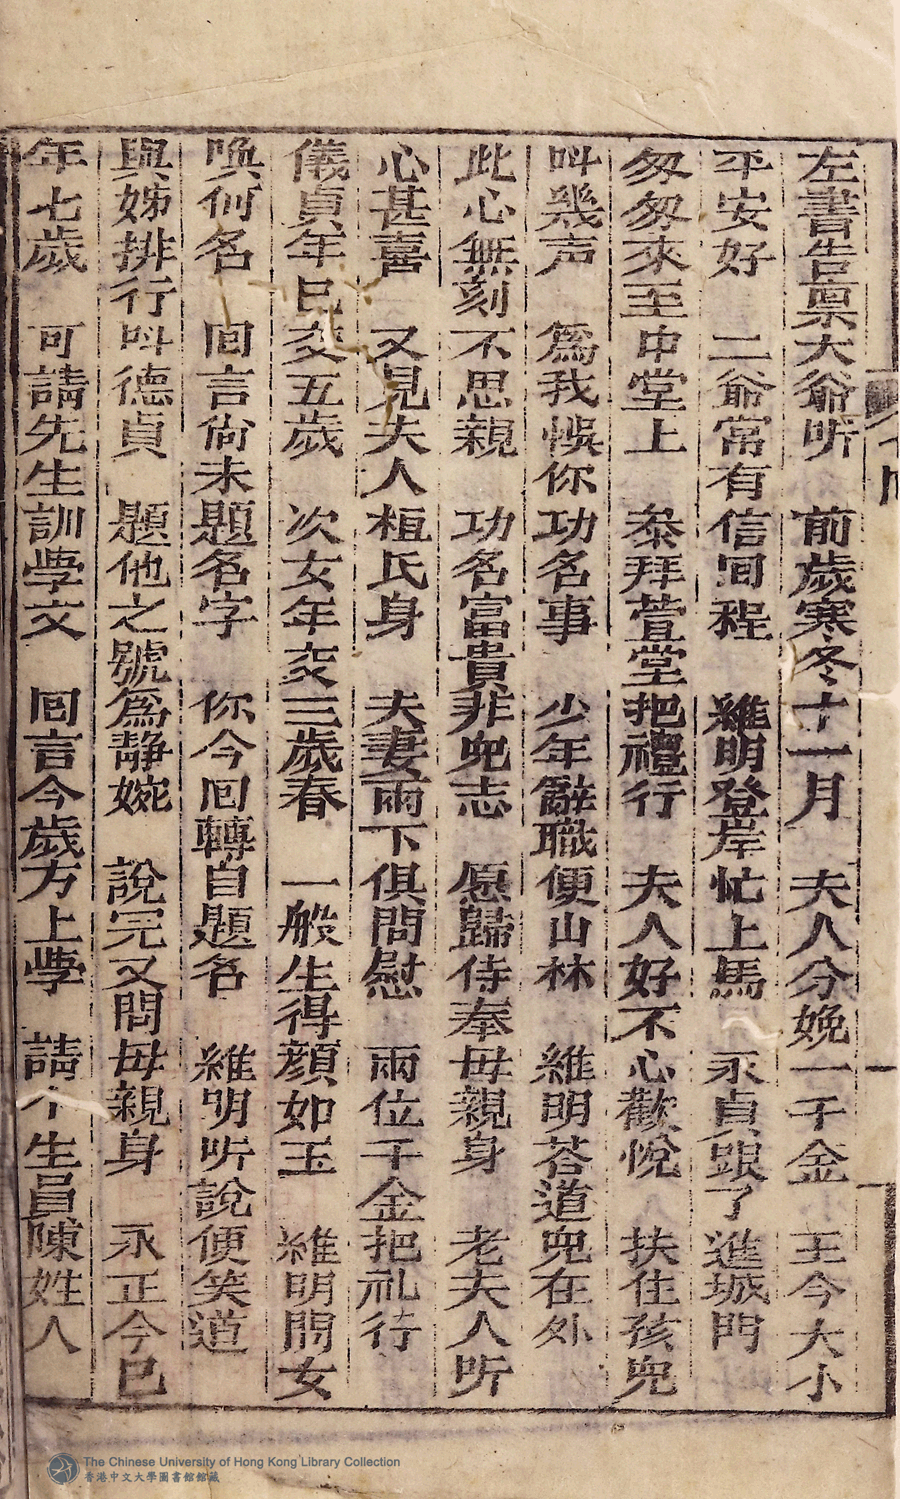 左書告稟大爺听　前歲寒冬十一月　夫人分娩一千金　王今大小
平安好　二爺常有信囬程　維明登岸忙上馬　永貞跟了進城門
匆匆來至中堂上　叅拜萱堂把禮行　夫人好不心歡悅　扶住孩兜
呌幾声　為我悞你功名事　少年辭職便山林　維明荅道兜在外
此心無刻不思親　功名富貴非兜志　愿歸侍奉毋親身　老夫人听
心甚喜　又見夫人桓氏身　夫妻兩下俱問慰　兩位千金把礼行
儀貞年已交五歲　次女年交三歲春　一般生得顏如玉　維明問女
喚何名　囬言尙未題名字　你今囬轉自題名　維明听說便笑道
與姊排行呌德貞　題他之號為靜婉　說完又問毋親身　永正今已
年七歲　可請先生訓學文　囬言今歲方上學　請个生員陳姓人
The Chinese University of Hong Kong Library Collection
香港中文大學圖書館館藏